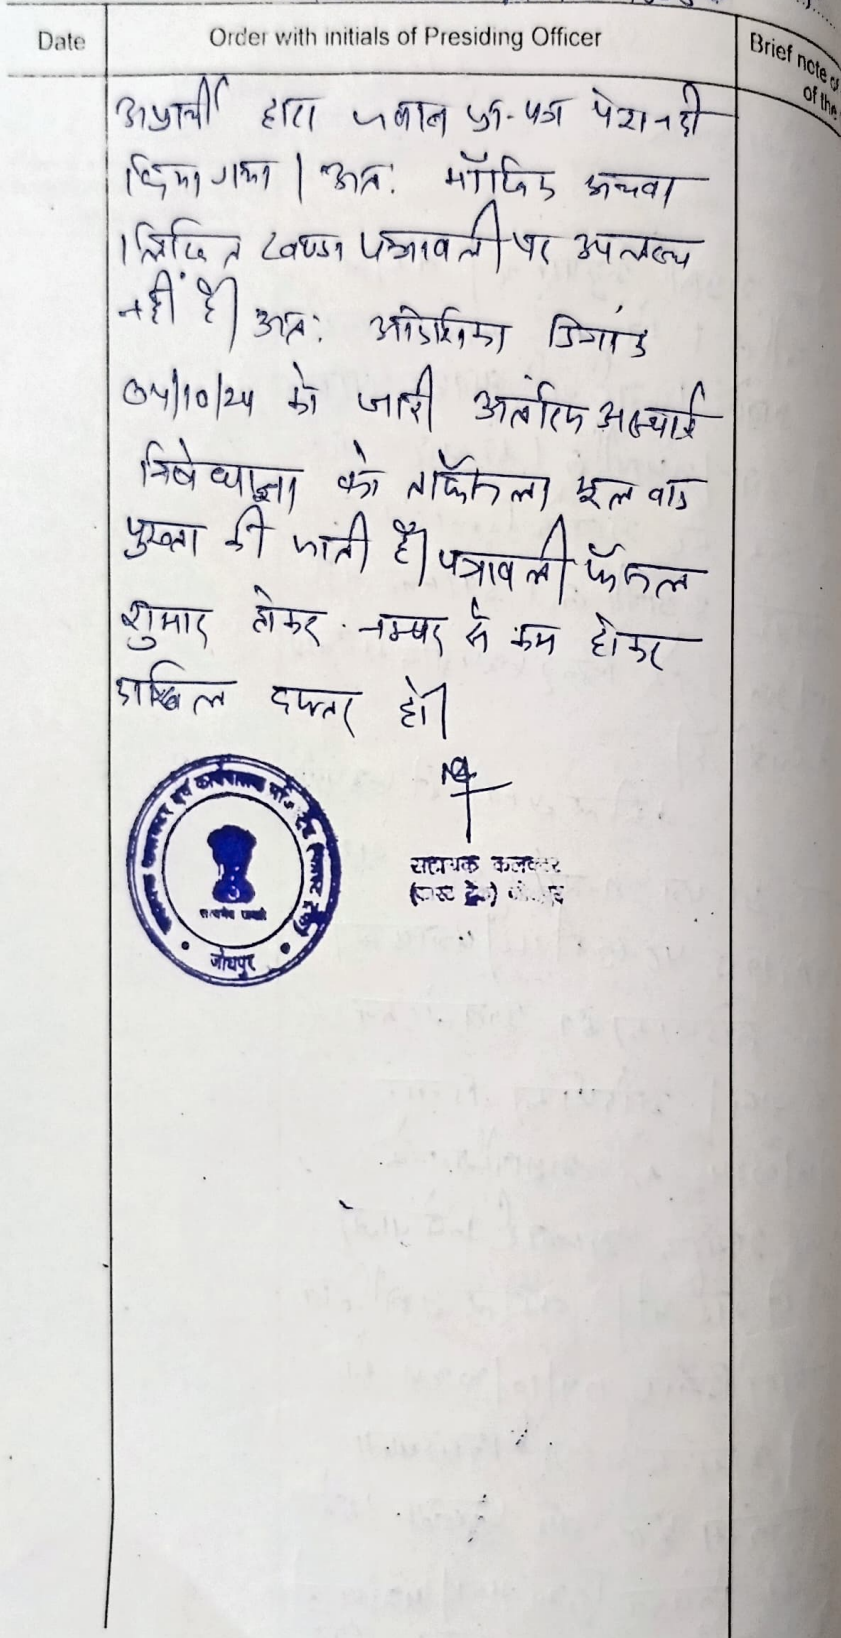 Date
Order with initials of Presiding Officer
Brief note of
of the
अप्रार्थी द्वारा जवाब प्रा.पत्र पेश नही
किया गया। अतः मौखिक अथवा
लिखित खण्डन पत्रावली पर उपलब्ध
नहीं है। अतः आदेशिका दिनांक
04/10/24 को जारी अंतरिम अस्थाई
निषेधाज्ञा को ताफैसला मूल वाद
पुख्ता की जाती है। पत्रावली फैसल
शुमार होकर नम्बर से कम होकर
दाखिल दफ्तर हो।
सहायक कलक्टर
(फास्ट ट्रेक) जोधपुर
सत्यमेव जयते
जोधपुर